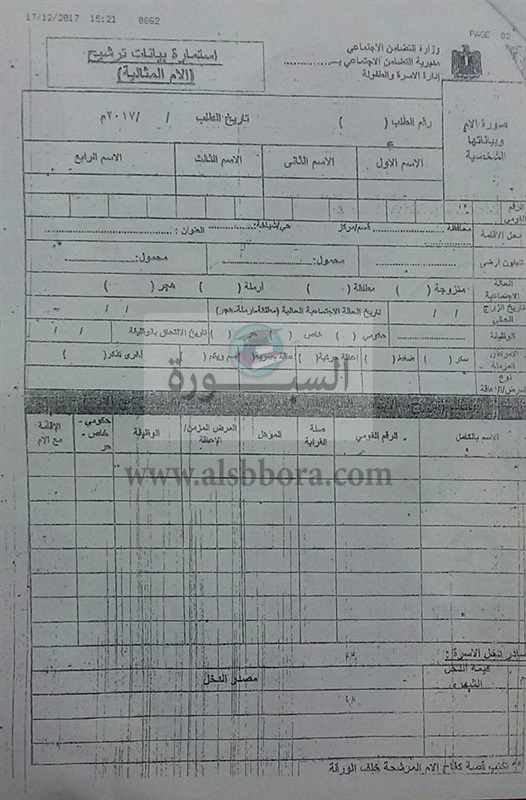 17/12/2017 15:21 0662 PAGE 02
وزارة التضامن الاجتماعي
مديرية التضامن الاجتماعي بـ................
إدارة الاسرة والطفولة
إستمارة بيانات ترشيح
(الام المثالية)
صورة الام
وبياناتها
الشخصية
رقم الطلب ( ) تاريخ الطلب / /٢٠١٧م
الاسم الاول الاسم الثانى الاسم الثالث الاسم الرابع
الرقم
القومى
محل الاقامة محافظة قسم/مركز حي/شياخة: العنوان :
تليفون أرضى محمول: محمول:
الحالة
الاجتماعية
متزوجة ( ) مطلقة ( ) أرملة ( ) هجر ( )
تاريخ الزواج
الحالى
/ / تاريخ الحالة الاجتماعية الحالية (مطلقة-أرملة-هجر) / /
الوظيفة حكومي ( ) خاص ( ) حر ( ) تاريخ الالتحاق بالوظيفة / /
الامراض
المزمنة
سكر ( ) ضغط ( ) إعاقة حركية ( ) أخرى تذكر( )
نوع
المرض/الإعاقة
السبورة
www.alsbbora.com
الاسم بالكامل الرقم القومي صلة القرابة المؤهل المرض المزمن/الإعاقة الوظيفة حكومي - خاص - حر الإقامة مع الام
دخل الاسرة :
قيمة الدخل مصدر الدخل
تكتب قصة كفاح الام المرشحة خلف الورقة